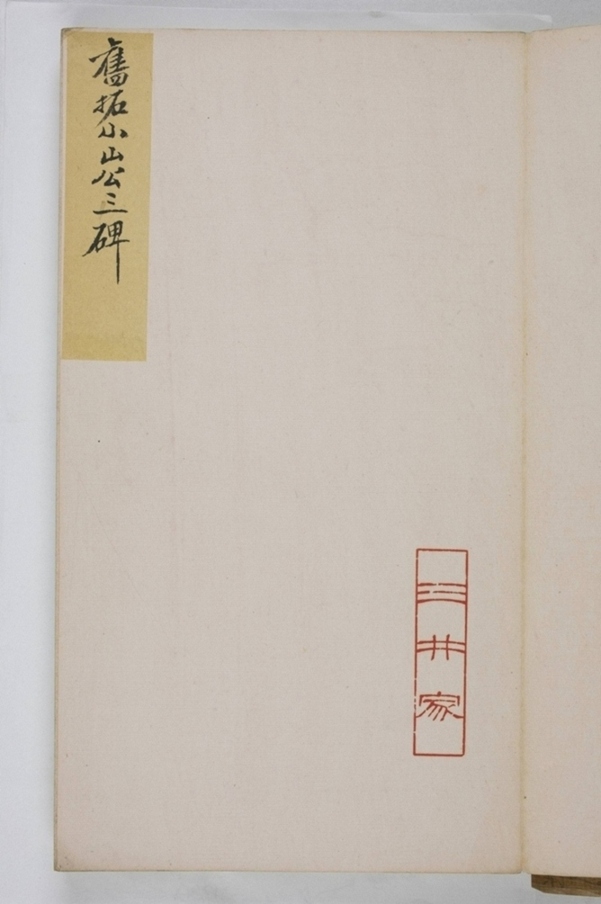 舊拓小山公三碑
三井家